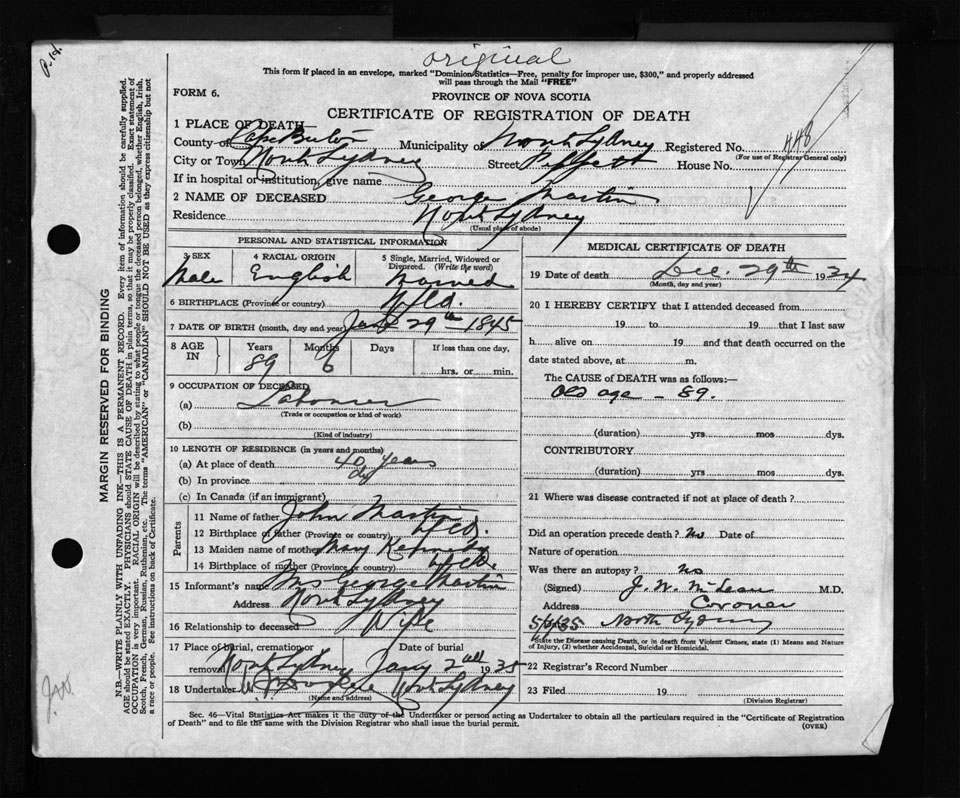 P. 14.
original
This form if placed in an envelope, marked "Dominion Statistics—Free, penalty for improper use, $300," and properly addressed
will pass through the Mail "FREE"
FORM 6.
PROVINCE OF NOVA SCOTIA
CERTIFICATE OF REGISTRATION OF DEATH
1 PLACE OF DEATH
County of Cape Breton Municipality of North Sydney Registered No. 448
(For use of Registrar General only)
City or Town North Sydney Street Peppett House No.
If in hospital or institution, give name
2 NAME OF DECEASED George Martin
Residence North Sydney
(Usual place of abode)
PERSONAL AND STATISTICAL INFORMATION
3 SEX Male
4 RACIAL ORIGIN English
5 Single, Married, Widowed or Divorced. (Write the word) Married
6 BIRTHPLACE (Province or country) Nfld.
7 DATE OF BIRTH (month, day and year) 29th 1845
8 AGE IN Years 89 Months 6 Days If less than one day, hrs. or min.
9 OCCUPATION OF DECEASED
(a) Labourer
(Trade or occupation or kind of work)
(b)
(Kind of industry)
10 LENGTH OF RESIDENCE (in years and months)
(a) At place of death 40 years
(b) In province do
(c) In Canada (if an immigrant)
Parents
11 Name of father John Martin
12 Birthplace of father (Province or country) Nfld.
13 Maiden name of mother Mary
14 Birthplace of mother (Province or country) Nfld.
15 Informant's name Mrs George Martin
Address North Sydney
16 Relationship to deceased Wife
17 Place of burial, cremation or removal North Sydney Date of burial Jany 2nd 1935
18 Undertaker North Sydney
(Name and address)
MEDICAL CERTIFICATE OF DEATH
19 Date of death Dec. 29th 1934
(Month, day and year)
20 I HEREBY CERTIFY that I attended deceased from
19 to 19 that I last saw
h alive on 19 and that death occurred on the
date stated above, at m.
The CAUSE of DEATH was as follows:—
Old age - 89.
(duration) yrs mos dys.
CONTRIBUTORY
(duration) yrs mos dys.
21 Where was disease contracted if not at place of death?
Did an operation precede death? No Date of
Nature of operation
Was there an autopsy? No
(Signed) J. W. McLean M.D.
Address Coroner
North Sydney
State the Disease causing Death, or in death from Violent Causes, state (1) Means and Nature
of Injury, (2) whether Accidental, Suicidal or Homicidal.
22 Registrar's Record Number
23 Filed 19
(Division Registrar)
Sec. 46—Vital Statistics Act makes it the duty of the Undertaker or person acting as Undertaker to obtain all the particulars required in the "Certificate of Registration
of Death" and to file the same with the Division Registrar who shall issue the burial permit.
(OVER)
MARGIN RESERVED FOR BINDING
N.B.—WRITE PLAINLY WITH UNFADING INK—THIS IS A PERMANENT RECORD. Every item of information should be carefully supplied.
AGE should be stated EXACTLY. PHYSICIANS should STATE CAUSE OF DEATH in plain terms, so that it may be properly classified. Exact statement of
OCCUPATION is very important. RACIAL ORIGIN will be described by stating to what people or tongue the deceased person belonged, whether English, Irish,
Scotch, French, German, Russian, Ruthenian, etc. The terms "AMERICAN" or "CANADIAN" SHOULD NOT BE USED as they express citizenship but not
a race or people. See instructions on back of Certificate.